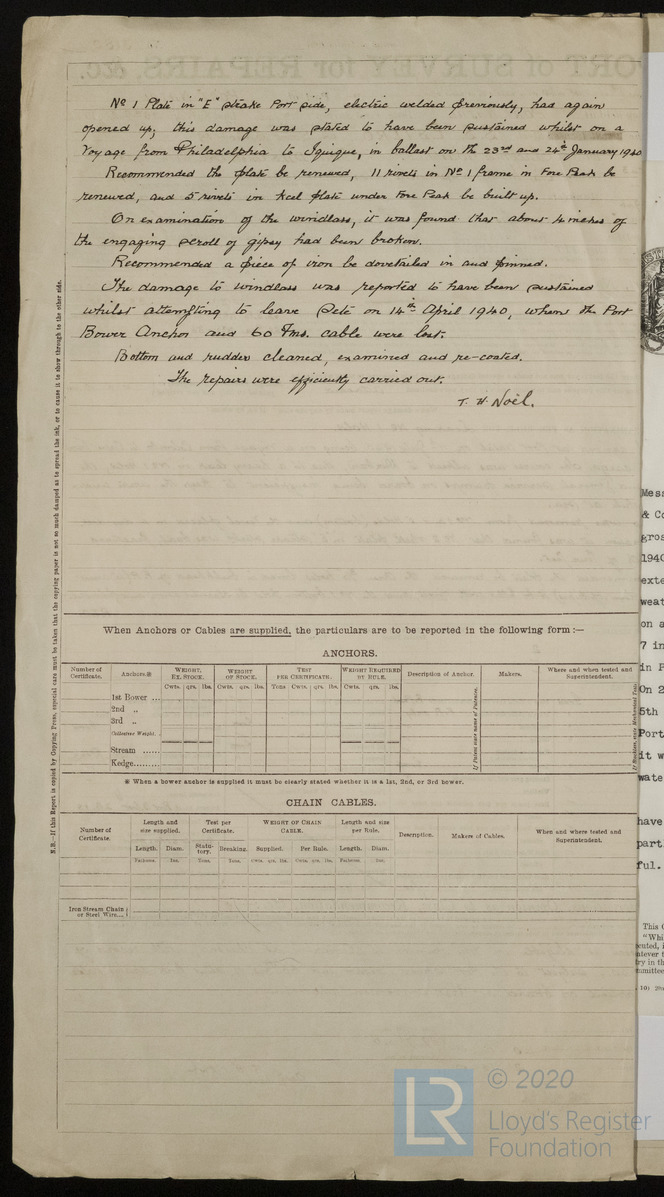 No 1 Plate in "E" strake Port side, electric welded previously, had again
opened up; this damage was stated to have been sustained whilst on a
Voyage from Philadelphia to Iquique, in ballast on the 23rd and 24th January 1940
Recommended the plate be renewed, 11 rivets in No 1 frame in Fore Peak be
renewed, and 5 rivets in keel plate under Fore Peak be built up.
On examination of the windlass, it was found that about 4 inches of
the engaging scroll of gipsy had been broken.
Recommended a piece of iron be dovetailed in and pinned.
The damage to windlass was reported to have been sustained
whilst attempting to leave Sete on 14th April 1940, when the Port
Bower Anchor and 60 Fms. cable were lost.
Bottom and rudder cleaned, examined and re-coated.
The repairs were efficiently carried out.
T. H. Noël.
N.B.—If this Report is copied by Copying Press, especial care must be taken that the copying paper is not so much damped as to spread the ink, or to cause it to show through to the other side.
When Anchors or Cables are supplied, the particulars are to be reported in the following form :—
ANCHORS.
Number of Certificate. Anchors※ WEIGHT, EX. STOCK. WEIGHT OF STOCK. TEST PER CERTIFICATE. WEIGHT REQUIRED BY RULE. Description of Anchor. Makers. Where and when tested and Superintendent.
Cwts. qrs. lbs. Cwts. qrs. lbs. Tons Cwts. qrs. lbs. Cwts. qrs. lbs.
1st Bower ...
2nd „
3rd „
Collective Weight.
Stream ......
Kedge........
If Patent state name of Patentee.
※ When a bower anchor is supplied it must be clearly stated whether it is a 1st, 2nd, or 3rd bower.
CHAIN CABLES.
Number of Certificate. Length and size supplied. Test per Certificate. WEIGHT OF CHAIN CABLE. Length and size per Rule. Description. Makers of Cables. When and where tested and Superintendent.
Length. Diam. Statutory. Breaking. Supplied. Per Rule. Length. Diam.
Fathoms. Ins. Tons. Tons. Cwts. qrs. lbs. Cwts. qrs. lbs. Fathoms. Ins.
Iron Stream Chain
or Steel Wire...
Mess
& Co
gros
1940
exte
weat
on a
7 in
in P
On 2
5th
Port
it w
wate
have
part
ful.
This C
"Whi
LR
© 2020
Lloyd's Register
Foundation